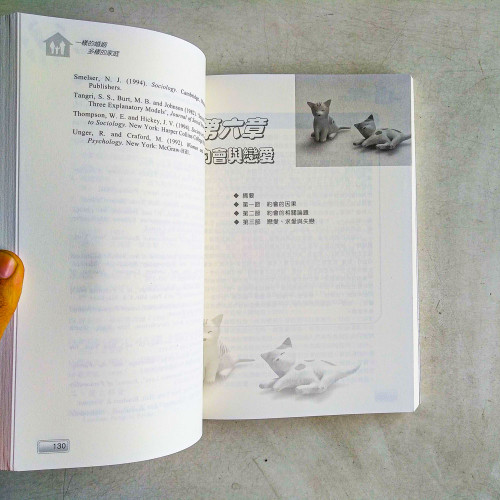 一樣的婚姻
多樣的家庭
Smelser, N. J. (1994). Sociology. Cambridge,
Publishers.
Tangri, S. S., Burt, M. B. and Johnson
Three Explanatory Models", Journal of
Thompson, W. E. and Hickey, J. V. (1994).
to Sociology. New York: Harper Collins
Unger, R. and Craford, M. (1992). Women and
Psychology. New York: McGraw-Hill.
130
第六章
約會與戀愛
◆ 摘要
◆ 第一節 約會的因果
◆ 第二節 約會的相關議題
◆ 第三節 戀愛、求愛與失戀